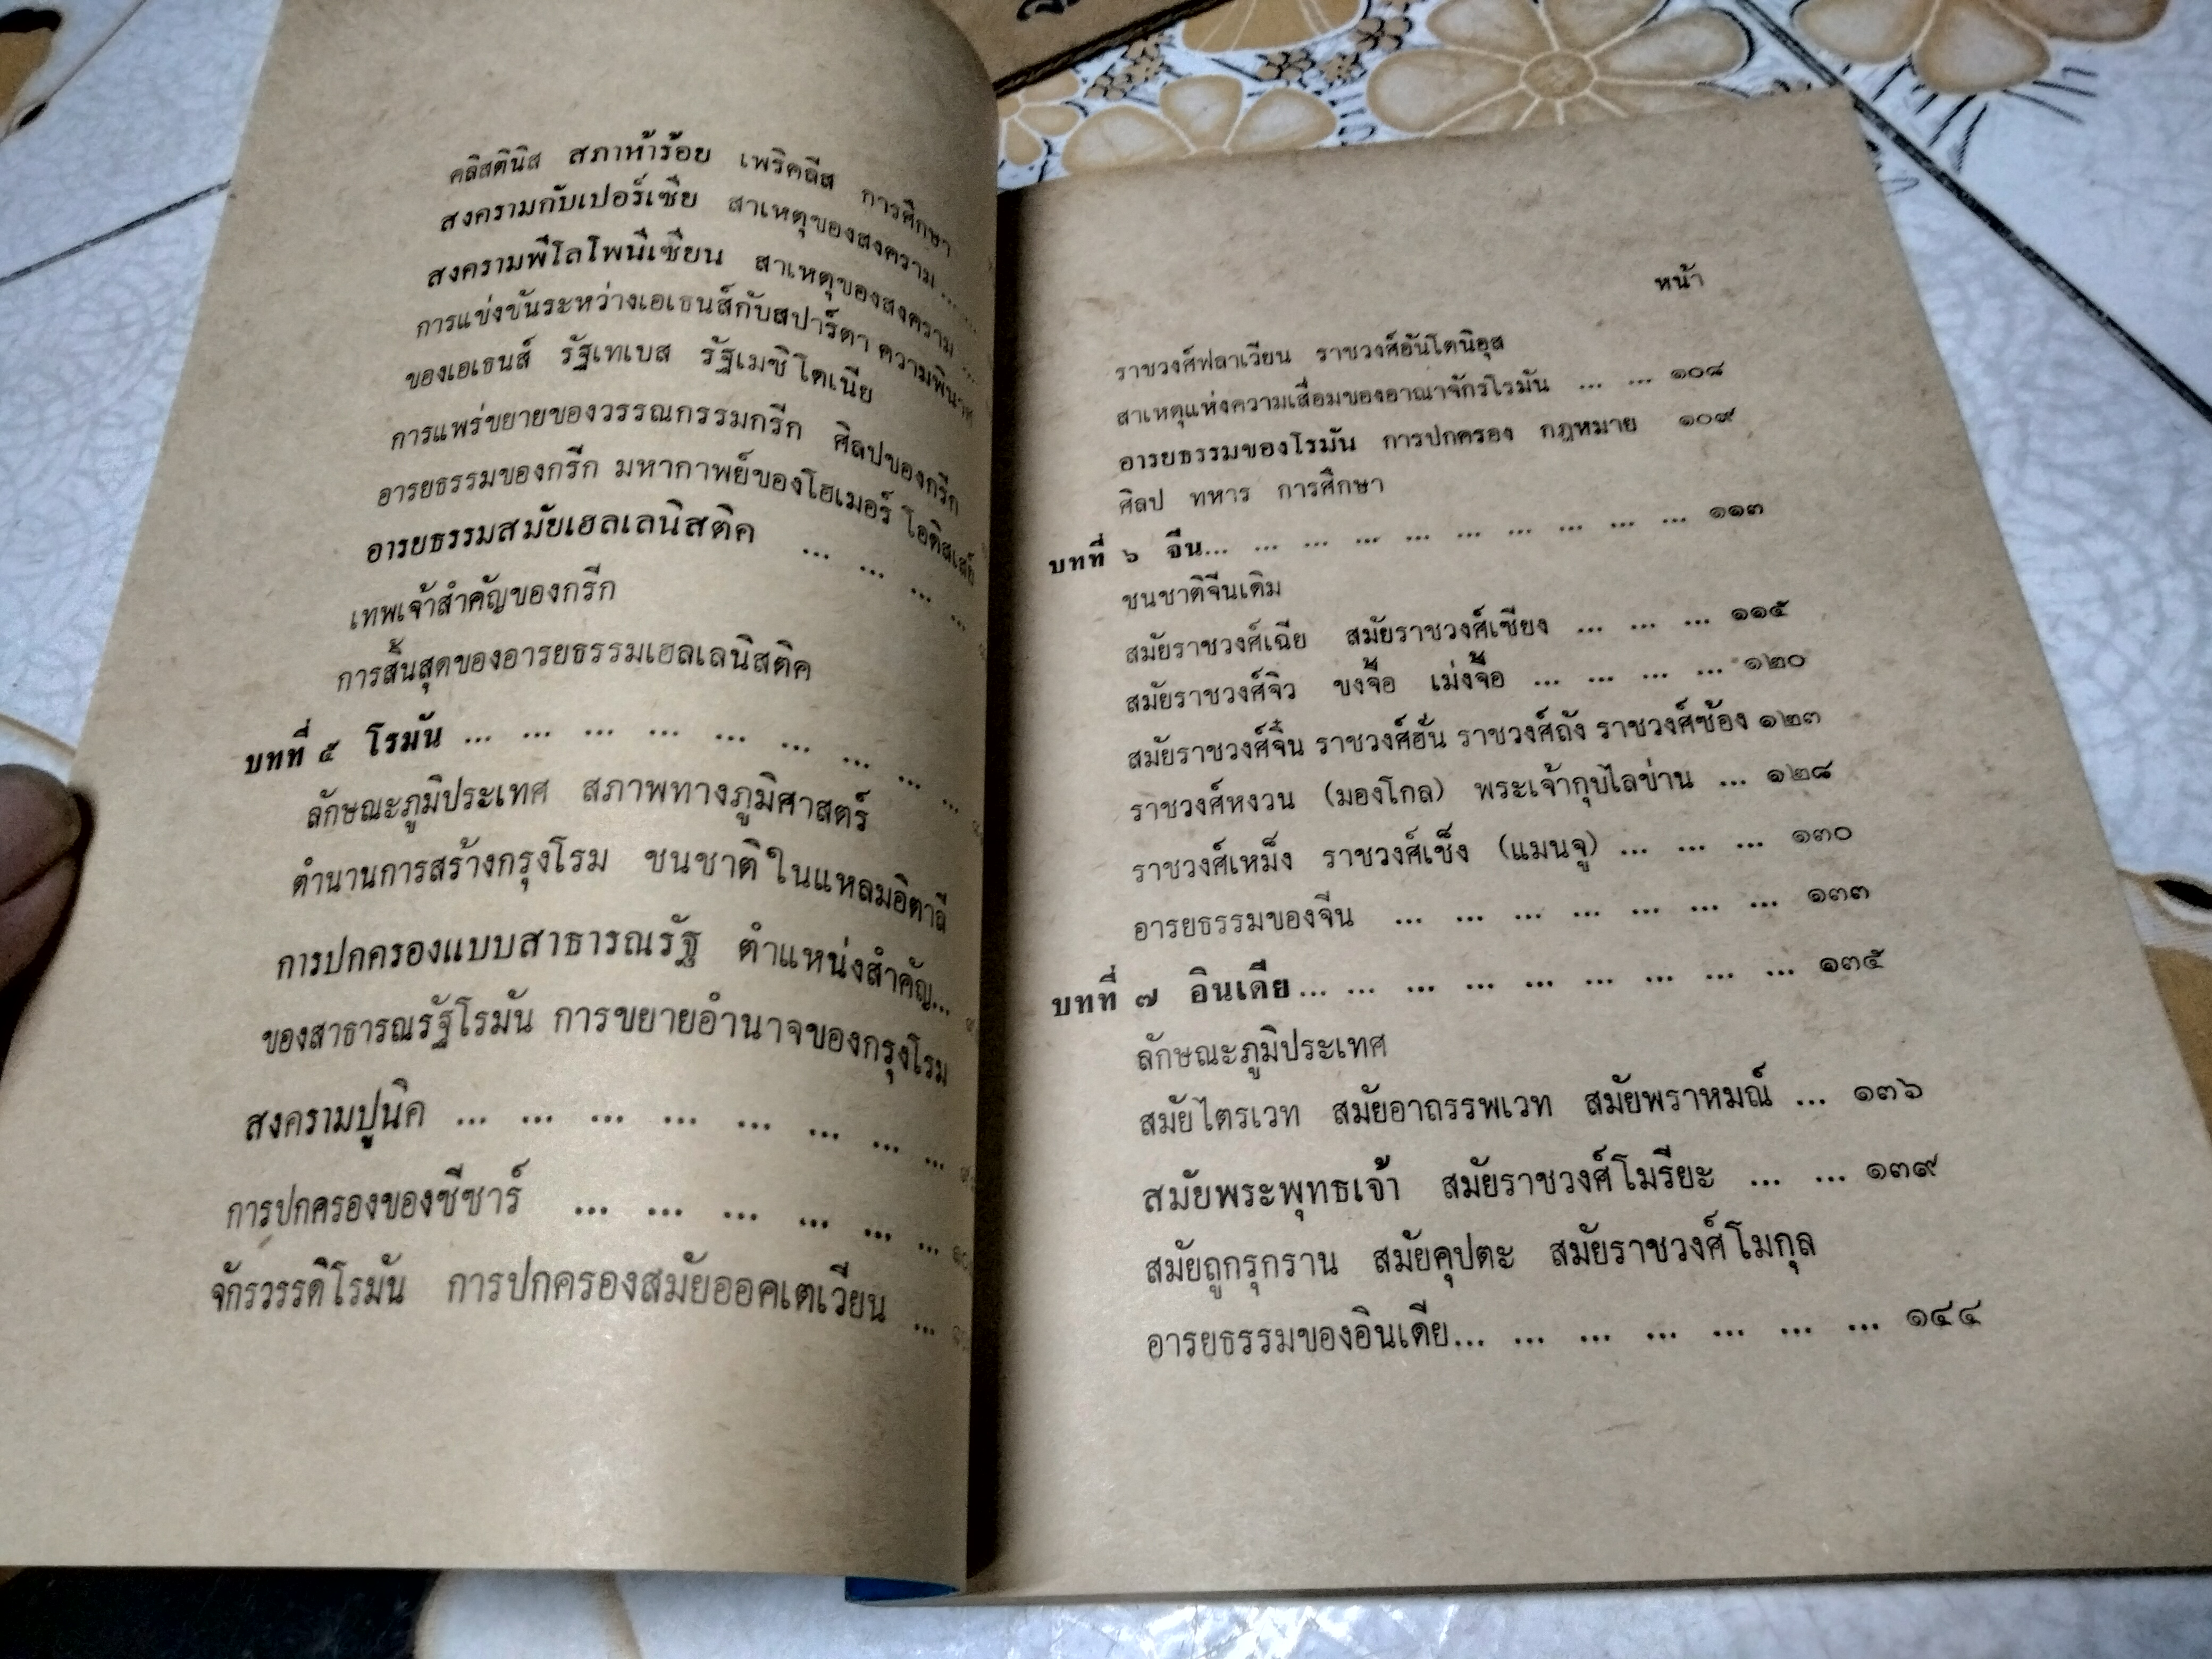 คลิสตินิส สภาห้าร้อย เพริคลีส การศึกษา
สงครามกับเปอร์เซีย สาเหตุของสงคราม ...
สงครามพีโลโพนีเซียน สาเหตุของสงคราม ...
การแข่งขันระหว่างเอเธนส์กับสปาร์ตา ความพินาศ
ของเอเธนส์ รัฐเทเบส รัฐเมซิโดเนีย
การแพร่ขยายของวรรณกรรมกรีก ศิลปของกรีก
อารยธรรมของกรีก มหากาพย์ของโฮเมอร์ โอดิสเส้ย์
อารยธรรมสมัยเฮลเลนิสติค ... ... ... ...
เทพเจ้าสำคัญของกรีก
การสิ้นสุดของอารยธรรมเฮลเลนิสติค
บทที่ ๕ โรมัน ... ... ... ... ... ... ... ... ...
ลักษณะภูมิประเทศ สภาพทางภูมิศาสตร์
ตำนานการสร้างกรุงโรม ชนชาติในแหลมอิตาลี
การปกครองแบบสาธารณรัฐ ตำแหน่งสำคัญ...
ของสาธารณรัฐโรมัน การขยายอำนาจของกรุงโรม
สงครามปูนิค ... ... ... ... ... ... ... ...
การปกครองของซีซาร์ ... ... ... ... ... ...
จักรวรรดิโรมัน การปกครองสมัยออคเตเวียน ...
หน้า
ราชวงศ์ฟลาเวียน ราชวงศ์อันโตนิอุส
สาเหตุแห่งความเสื่อมของอาณาจักรโรมัน ... ... ๑๐๘
อารยธรรมของโรมัน การปกครอง กฎหมาย ๑๐๙
ศิลป ทหาร การศึกษา
บทที่ ๖ จีน... ... ... ... ... ... ... ... ... ... ๑๑๓
ชนชาติจีนเดิม
สมัยราชวงศ์เฉีย สมัยราชวงศ์เซียง ... ... ... ๑๑๕
สมัยราชวงศ์จิว ขงจื๊อ เม่งจื๊อ ... ... ... ... ๑๒๐
สมัยราชวงศ์จิ๋น ราชวงศ์ฮั่น ราชวงศ์ถัง ราชวงศ์ซ้อง ๑๒๓
ราชวงศ์หงวน (มองโกล) พระเจ้ากุบไลข่าน ... ๑๒๘
ราชวงศ์เหม็ง ราชวงศ์เช็ง (แมนจู) ... ... ... ๑๓๐
อารยธรรมของจีน ... ... ... ... ... ... ... ๑๓๓
บทที่ ๗ อินเดีย... ... ... ... ... ... ... ... ... ๑๓๕
ลักษณะภูมิประเทศ
สมัยไตรเวท สมัยอาถรรพเวท สมัยพราหมณ์ ... ๑๓๖
สมัยพระพุทธเจ้า สมัยราชวงศ์โมริยะ ... ... ๑๓๙
สมัยถูกรุกราน สมัยคุปตะ สมัยราชวงศ์โมกุล
อารยธรรมของอินเดีย... ... ... ... ... ... ... ... ๑๔๔